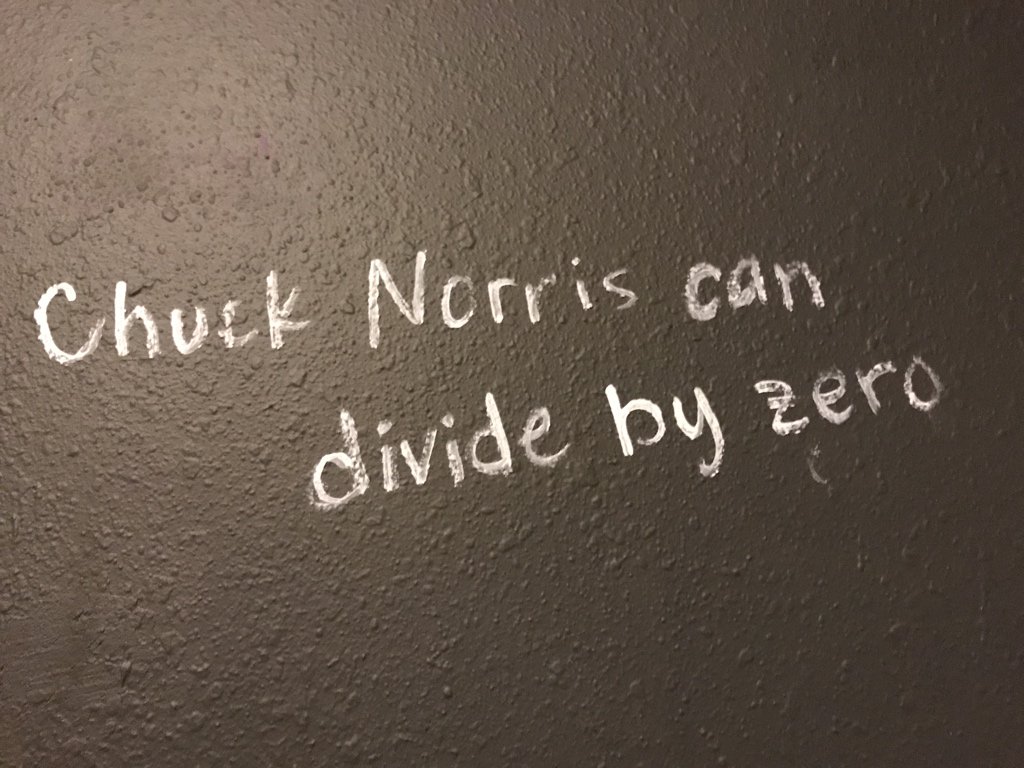 Chuck Norris can
divide by zero